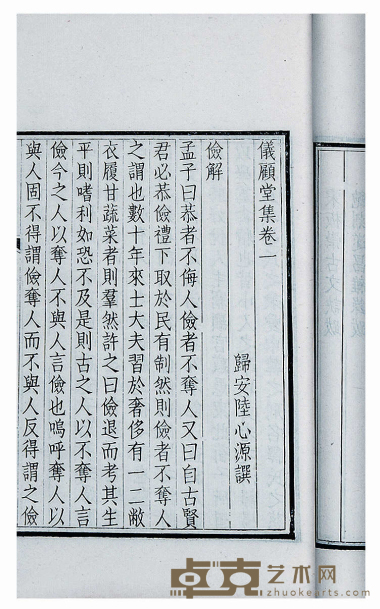 儀顧堂集卷一
歸安陸心源譔
儉解
孟子曰恭者不侮人儉者不奪人又曰自古賢
君必恭儉禮下取於民有制然則儉者不奪人
之謂也數十年來士大夫習於奢侈有一二敝
衣履甘蔬菜者則羣然許之曰儉退而考其生
平則嗜利如恐不及是則古之人以不奪人言
儉今之人以奪人不與人言儉也嗚呼奪人以
與人固不得謂儉奪人而不與人反得謂之儉
卓克艺术网
zhuokearts.com